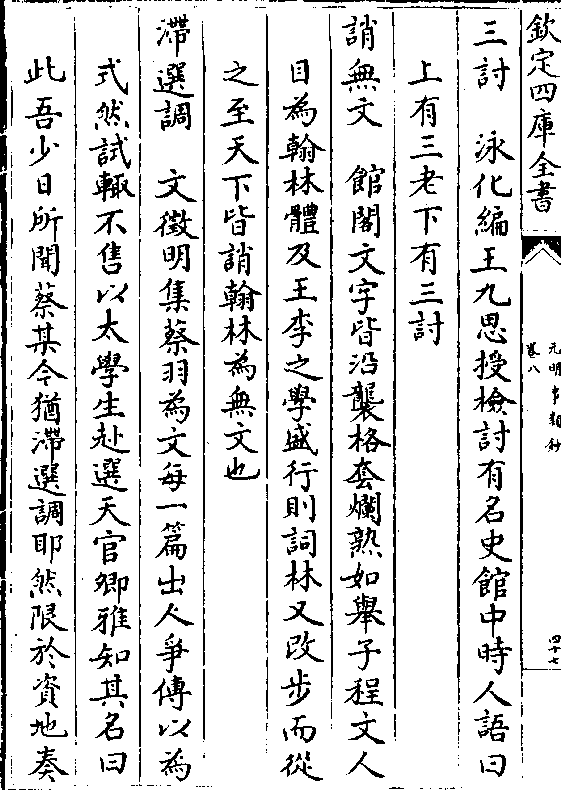 欽定四庫全書
元明事類鈔
卷八
四十七
三討　泳化編王九思授檢討有名史館中時人語曰
上有三老下有三討
誚無文　館閣文字皆沿襲格套爛熟如舉子程文人
目為翰林體及王李之學盛行則詞林又改步而從
之至天下皆誚翰林為無文也
滯選調　文徵明集蔡羽為文每一篇出人爭傳以為
式然試輙不售以太學生赴選天官卿雅知其名曰
此吾少日所聞蔡某今猶滯選調耶然限於資地奏